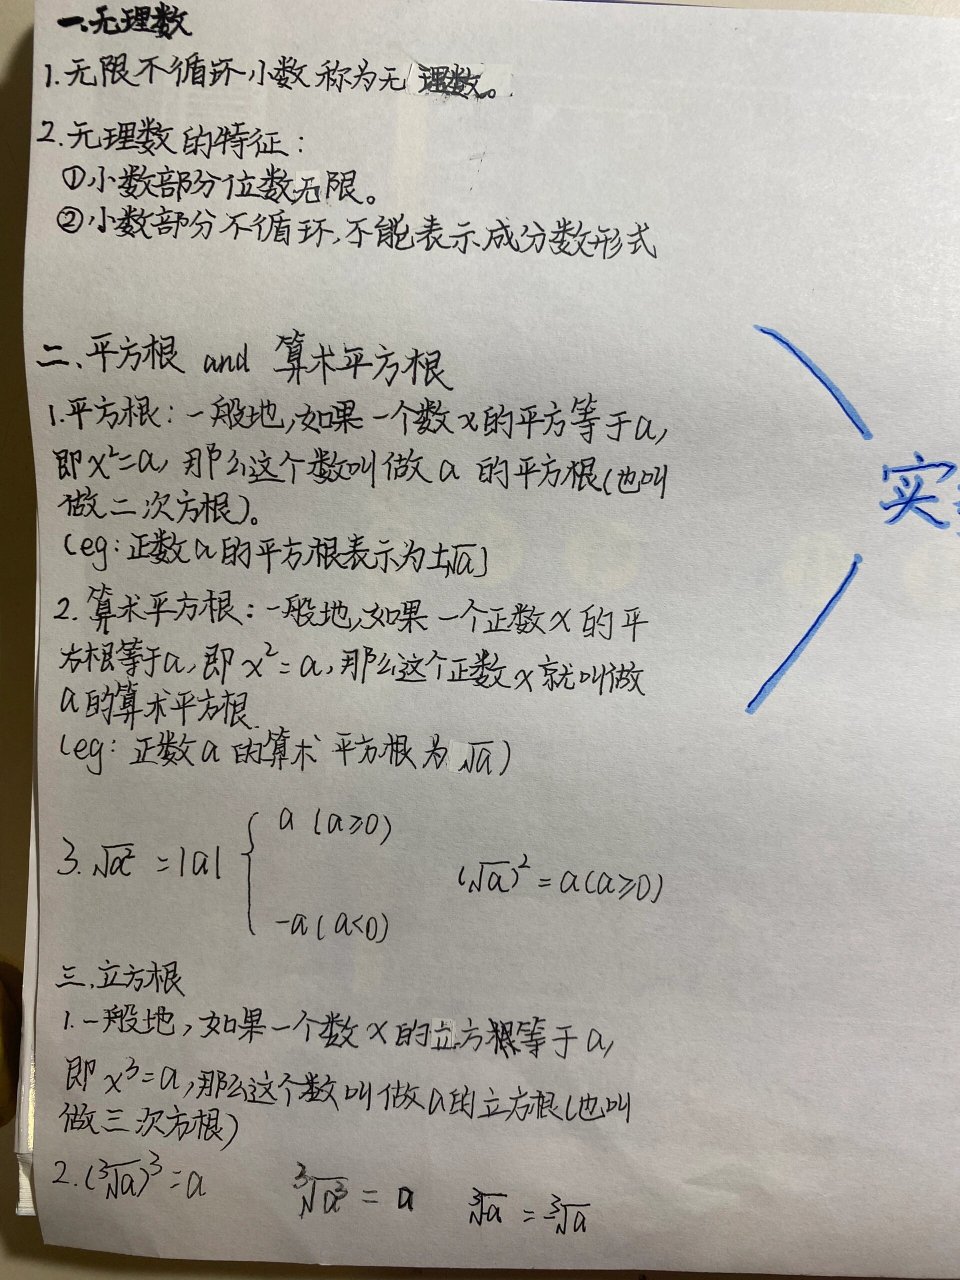 一、无理数
1.无限不循环小数称为无理数。
2.无理数的特征：
①小数部分位数无限。
②小数部分不循环,不能表示成分数形式
二、平方根 and 算术平方根
1.平方根：一般地,如果一个数x的平方等于a,
即x²=a,那么这个数叫做a的平方根(也叫
做二次方根)。
(eg:正数a的平方根表示为±√a)
2.算术平方根：一般地,如果一个正数x的平
方根等于a,即x²=a,那么这个正数x就叫做
a的算术平方根
(eg:正数a的算术平方根为√a)
3.√a² =|a| { a (a≥0)
-a(a<0)
(√a)²=a(a≥0)
实
三、立方根
1.一般地,如果一个数x的立方根等于a,
即x³=a,那么这个数叫做a的立方根(也叫
做三次方根)
2.(∛a)³=a ∛a³=a ∛a=-∛a